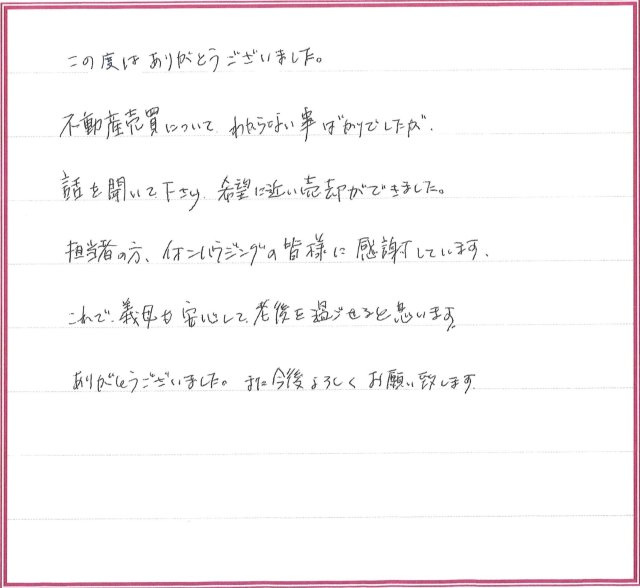 この度はありがとうございました。
不動産売買について、わからない事ばかりでしたが、
話を聞いて下さり、希望に近い売却ができました。
担当者の方、イオンハウジングの皆様に感謝しています。
これで、義母も安心して、老後を過ごせると思います。
ありがとうございました。また今後よろしくお願い致します。